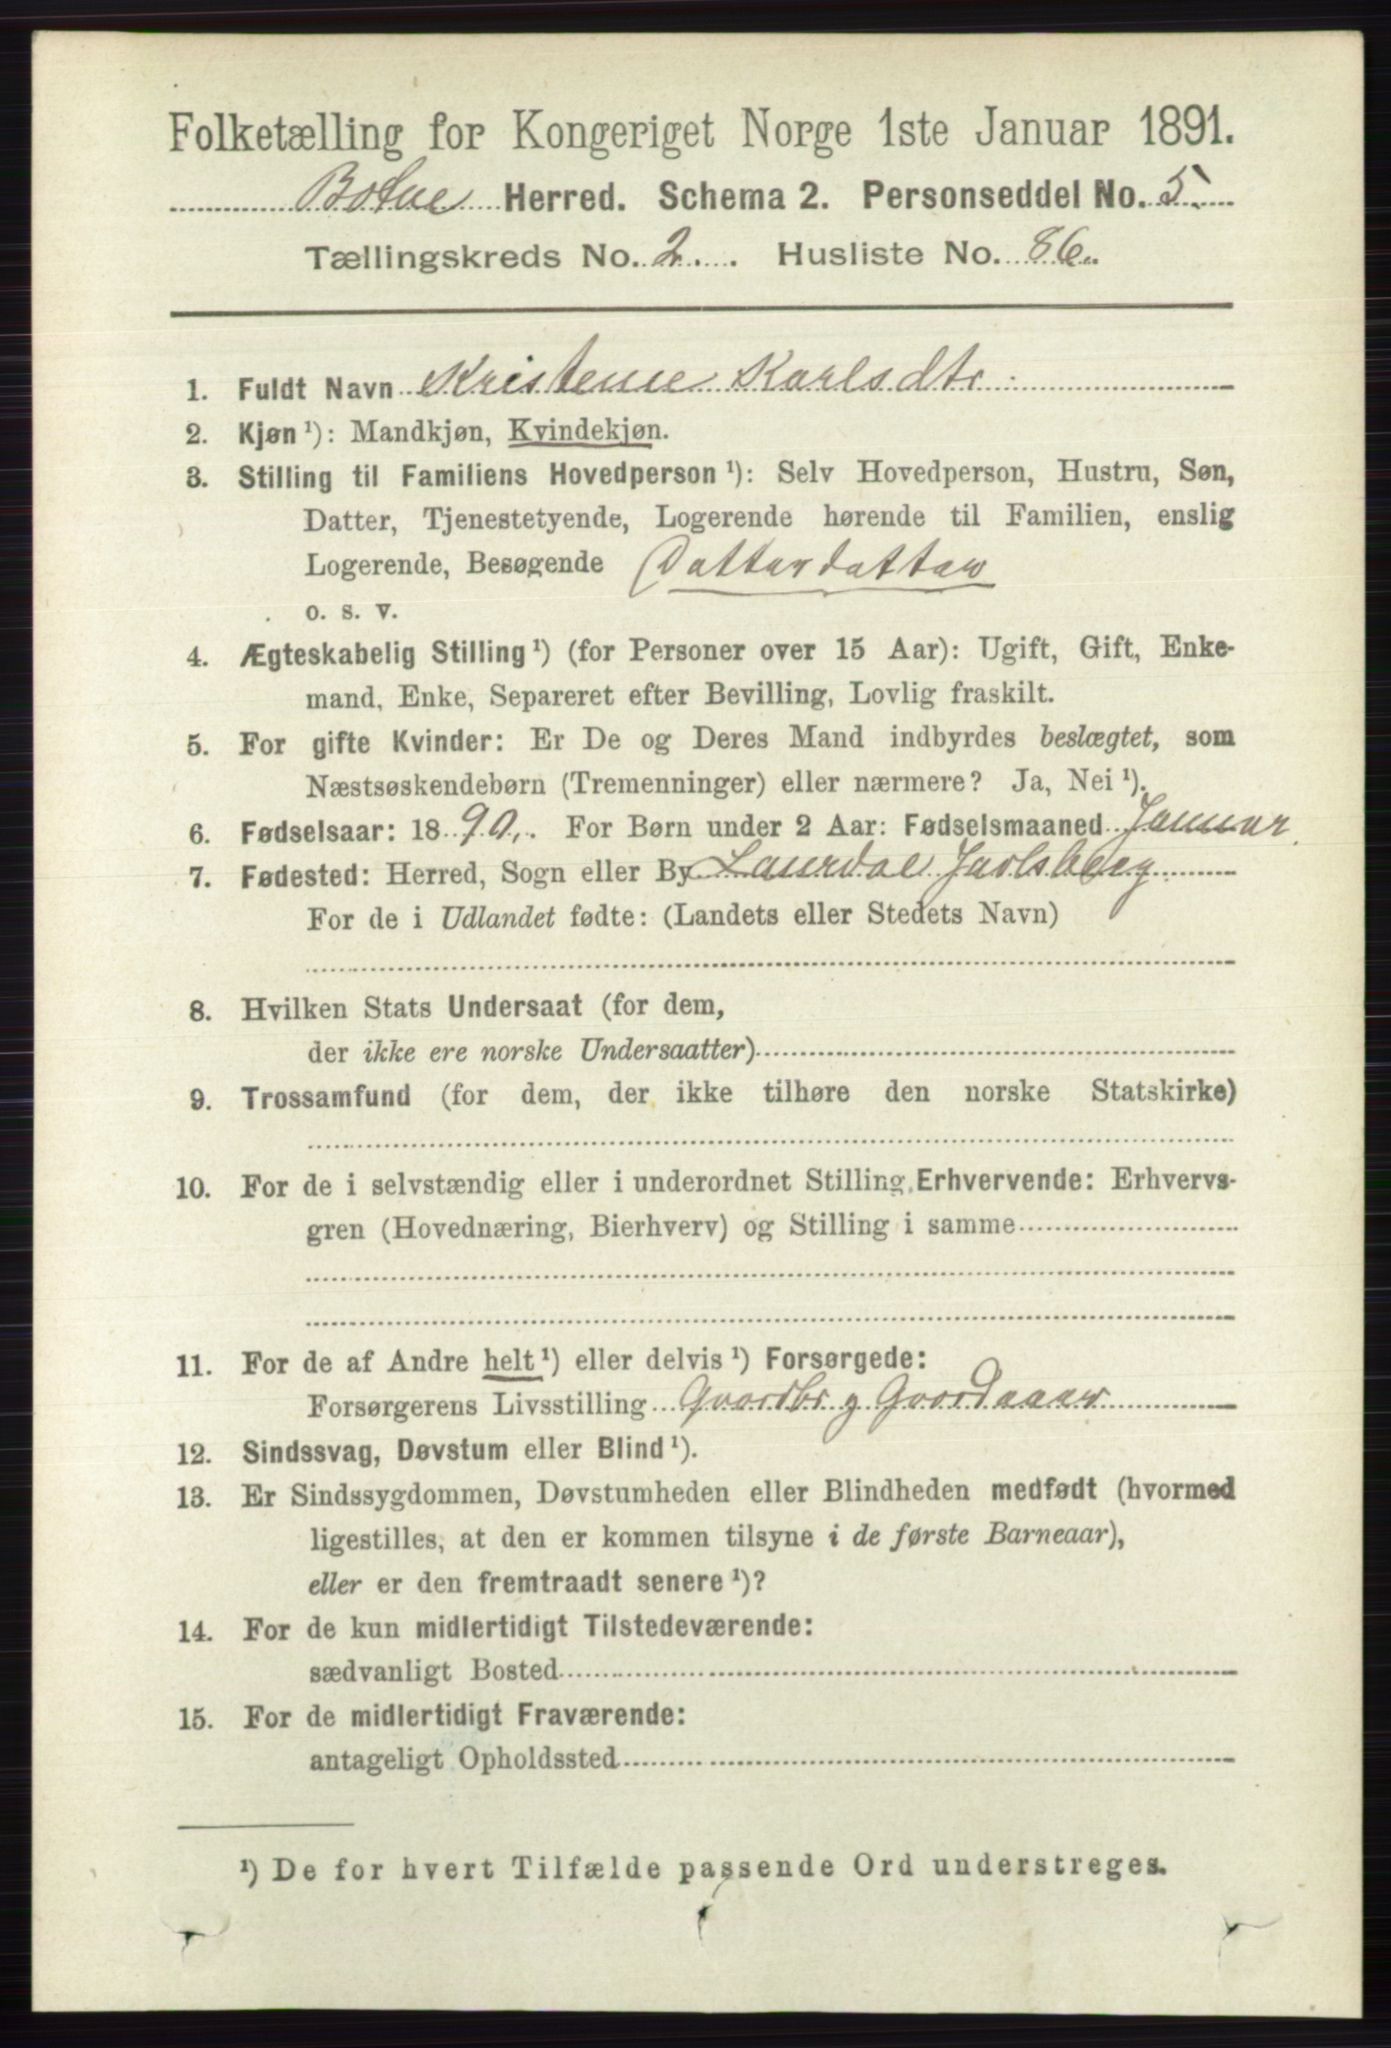 Folketælling for Kongeriget Norge 1ste Januar 1891.
Botne Herred. Schema 2. Personseddel No. 5.
Tællingskreds No. 2. Husliste No. 86.
1. Fuldt Navn Kristense Karlsdtr.
2. Kjøn ¹): Mandkjøn, Kvindekjøn.
3. Stilling til Familiens Hovedperson ¹): Selv Hovedperson, Hustru, Søn,
Datter, Tjenestetyende, Logerende hørende til Familien, enslig
Logerende, Besøgende Datterdatter
o. s. v.
4. Ægteskabelig Stilling ¹) (for Personer over 15 Aar): Ugift, Gift, Enke-
mand, Enke, Separeret efter Bevilling, Lovlig fraskilt.
5. For gifte Kvinder: Er De og Deres Mand indbyrdes beslægtet, som
Næstsøskendebørn (Tremenninger) eller nærmere? Ja, Nei ¹).
6. Fødselsaar: 1890. For Børn under 2 Aar: Fødselsmaaned Januar
7. Fødested: Herred, Sogn eller By Laurdal Jarlsberg
For de i Udlandet fødte: (Landets eller Stedets Navn)
8. Hvilken Stats Undersaat (for dem,
der ikke ere norske Undersaatter)
9. Trossamfund (for dem, der ikke tilhøre den norske Statskirke)
10. For de i selvstændig eller i underordnet Stilling Erhvervende: Erhvervs-
gren (Hovednæring, Bierhverv) og Stilling i samme
11. For de af Andre helt ¹) eller delvis ¹) Forsørgede:
Forsørgerens Livsstilling Gaardbr g
12. Sindssvag, Døvstum eller Blind ¹).
13. Er Sindssygdommen, Døvstumheden eller Blindheden medfødt (hvormed
ligestilles, at den er kommen tilsyne i de første Barneaar),
eller er den fremtraadt senere ¹)?
14. For de kun midlertidigt Tilstedeværende:
sædvanligt Bosted
15. For de midlertidigt Fraværende:
antageligt Opholdssted
¹) De for hvert Tilfælde passende Ord understreges.